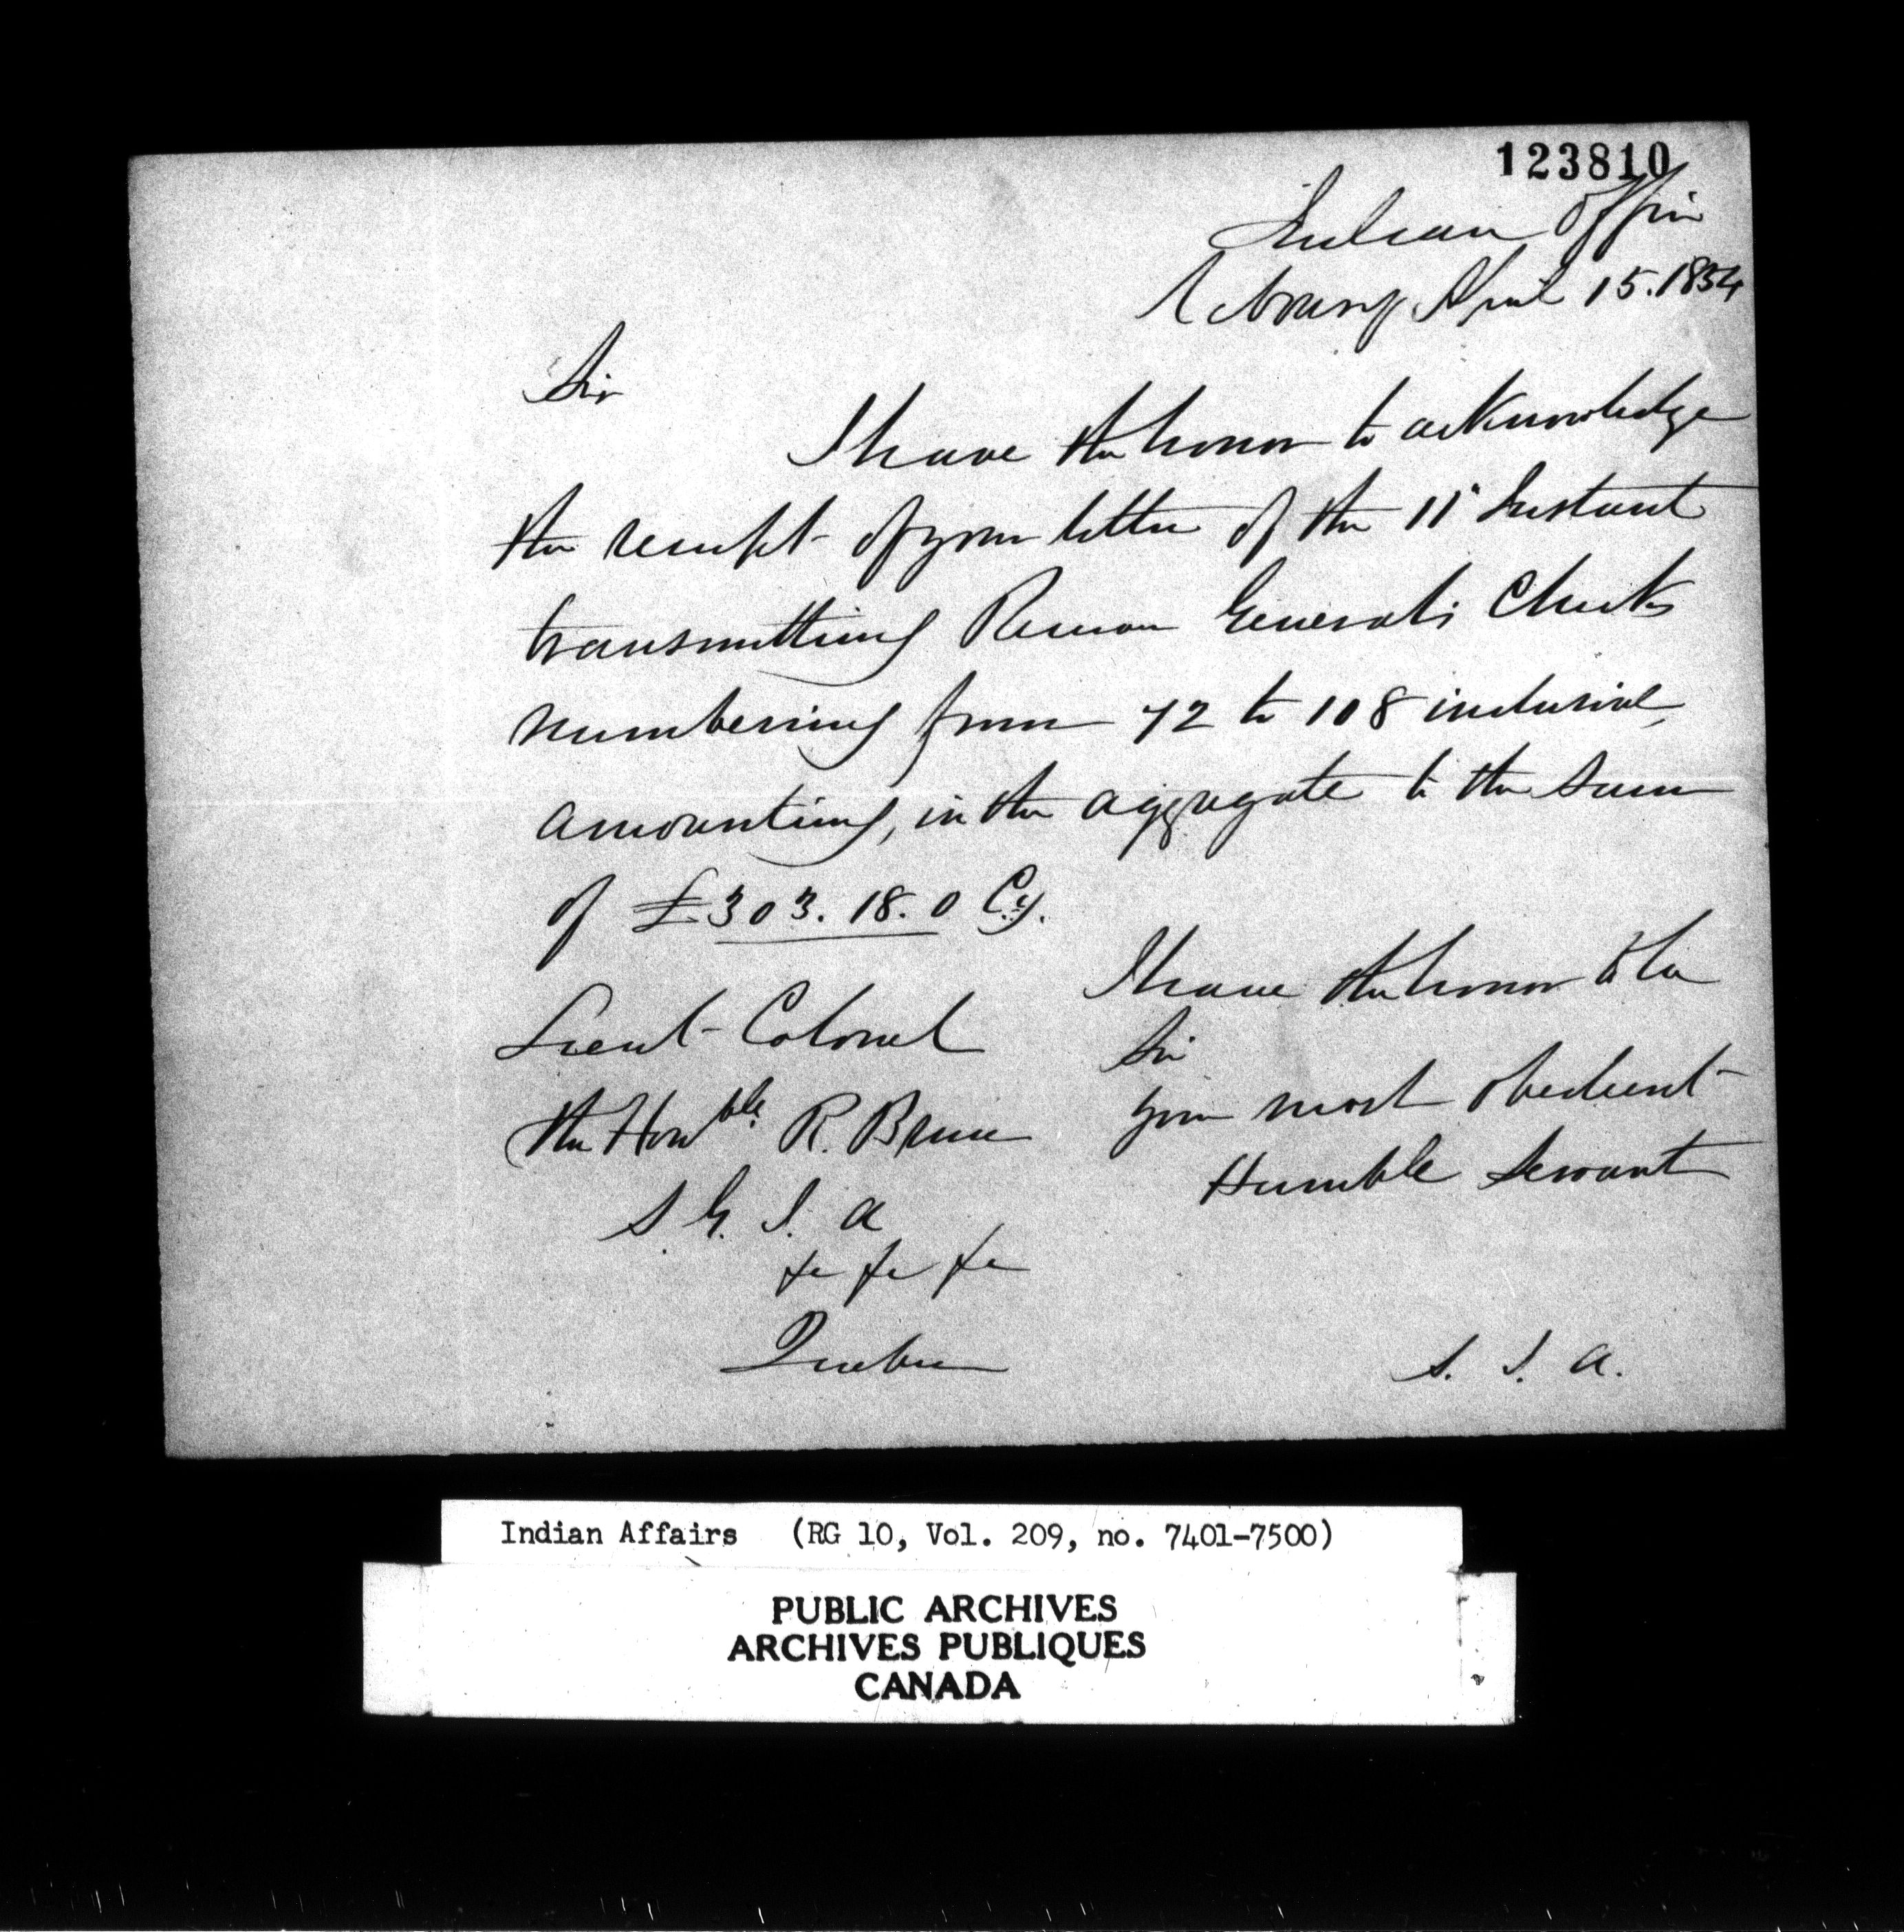 123810
Indian Office
Cobourg April 15. 1854
Sir
I have the honor to acknowledge
the receipt of your letter of the 11th Instant
transmitting Receiver General's Checks
numbering from 72 to 108 inclusive,
amounting, in the aggregate to the sum
of £303. 18. 0 Cy.
I have the honor to be
Sir
your most obedient
Humble Servant
Lieut Colonel
the Honble. R. Bruce
S. G. I. A
&c &c &c
Quebec
S. I. A.
Indian Affairs (RG 10, Vol. 209, no. 7401-7500)
PUBLIC ARCHIVES
ARCHIVES PUBLIQUES
CANADA